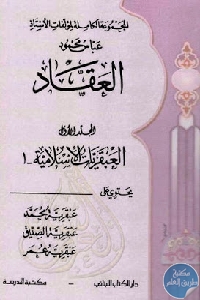 المجموعة الكاملة لمؤلفات الأستاذ
عباس محمود
العقاد
المجلد الأول
العبقريات الإسلامية - ١
يحتوي على
عبقرية محمد
عبقرية الصديق
عبقرية عمر
دار الكتاب اللبناني - مكتبة المدرسة
مكتبة
طريق العلم